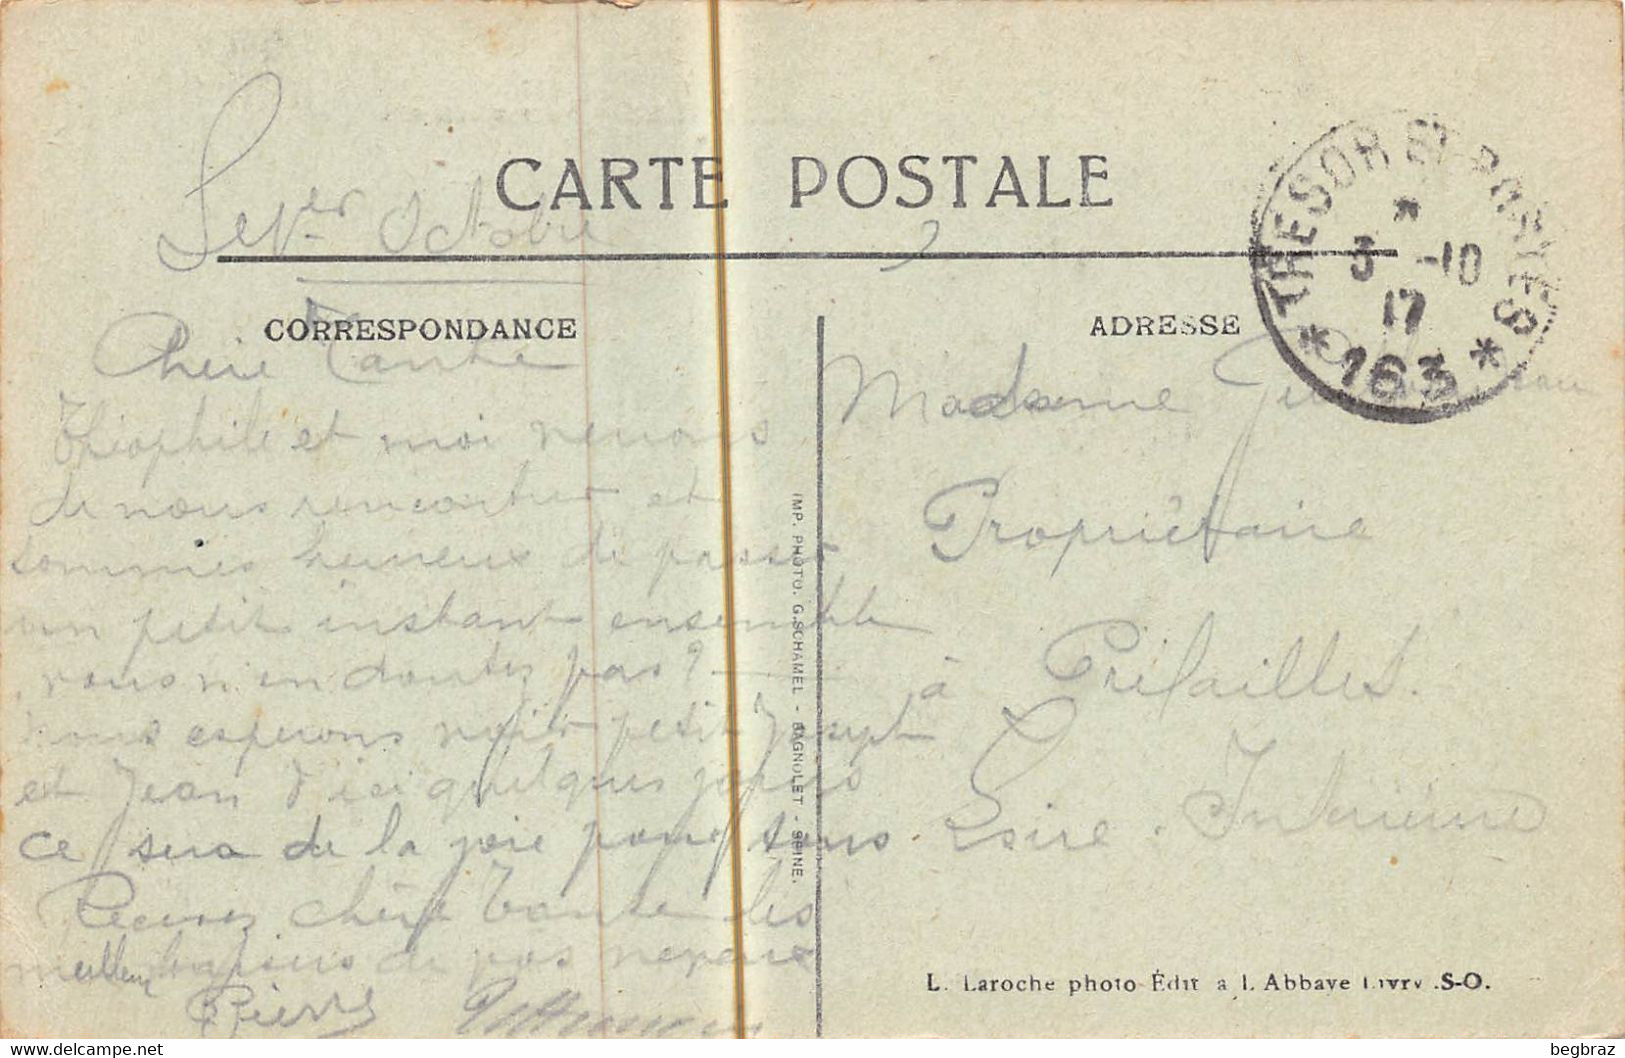 CARTE POSTALE
Le 1er Octobre
CORRESPONDANCE
Chère Tante
Théophile et moi venons
de nous rencontrer et
sommes heureux de passer
un petit instant ensemble
vous n'en doutez pas ?
nous esperons voir petit Joseph
et Jean d'ici quelques jours
ce sera de la joie pour tous
Recevez chère Tante les
meilleurs baisers de vos neveux
Pierre
IMP. PHOTO. G. SCHAMEL - BAGNOLET - SEINE.
TRESOR ET POSTES
3 -10
17
* 163 *
ADRESSE
Madame
Propriétaire
à Préfailles.
Loire Inférieure
L. Laroche photo Édit a l'Abbaye Livry .S-O.
begbraz